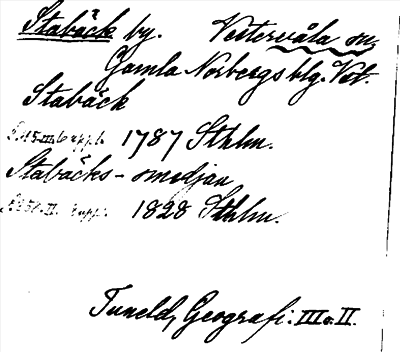 Stabäck by. Västervåla sn,
Gamla Norbergs blg. Vstm.
Stabäck
S. 115. III. 6 uppl. 1787 Sthlm.
Stabäcks-smedjan
II. uppl. 1828 Sthlm.
Tuneld, Geografi. III o. II.